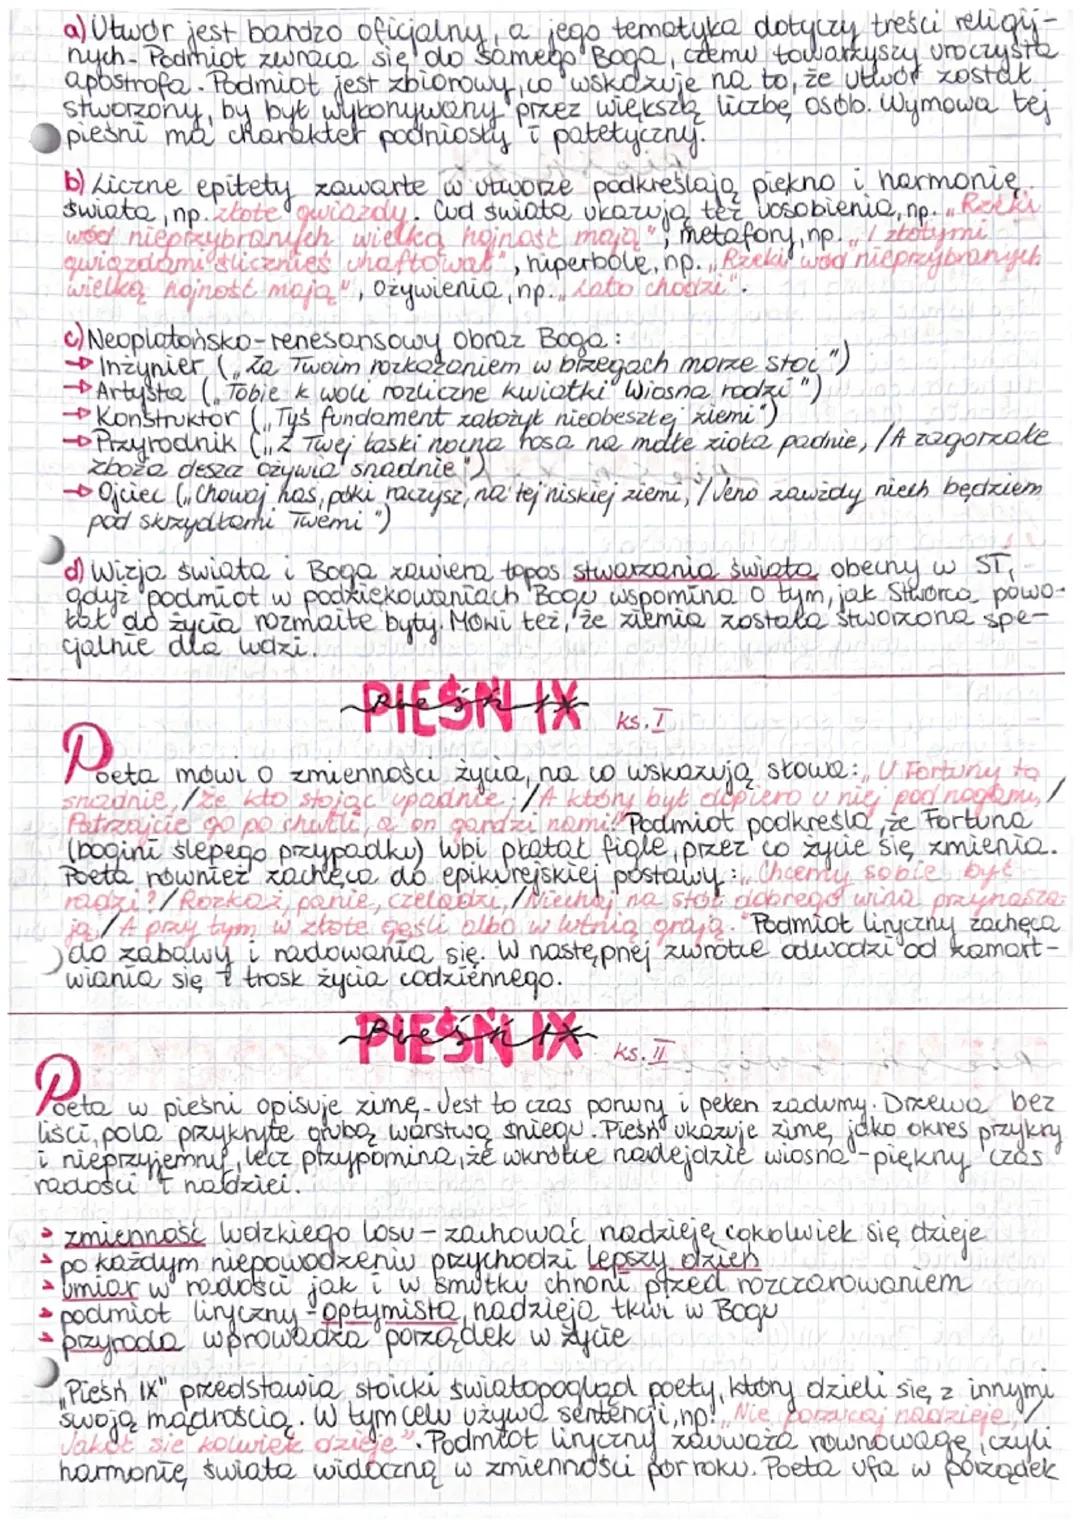 a) Utwór jest bardzo oficjalny, a jego tematyka dotyczy treści religij-
nych. Podmiot zwraca się do samego Boga, czemu towarzyszy uroczysta
apostrofa. Podmiot jest zbiorowy, co wskazuje na to, że utwór został
stworzony, by był wykonywany przez większą liczbę osób. Wymowa tej
pieśni ma charakter podniosły i patetyczny.
b) Liczne epitety zawarte w utworze podkreślają piękno i harmonię
świata, np. złote gwiazdy. Cud świata ukazują też uosobienia, np. „Rzeki
wód nieprzybranych wielką hojność mają", metafory, np. „I złotymi
gwiazdami ślicznieś uhaftował", hiperbole, np. „Rzeki wód nieprzybranych
wielką hojność mają", ożywienia, np. „Lato chodzi".
c) Neoplatońsko-renesansowy obraz Boga:
→ Inżynier („Za Twoim rozkazaniem w brzegach morze stoi")
→ Artysta („Tobie k woli rozliczne kwiatki Wiosna rodzi")
→ Konstruktor („Tyś fundament założył nieobeszłej ziemi")
→ Przyrodnik („Z Twej łaski nocna rosa na małe zioła padnie, /A zagorzałe
zboża deszcz ożywia snadnie")
→ Ojciec („Chowaj nas, póki raczysz, na tej niskiej ziemi, /Jeno zawżdy niech będziem
pod skrzydłami Twemi")
d) Wizja świata i Boga zawiera topos stwarzania świata obecny w ST,
gdyż podmiot w podziękowaniach Bogu wspomina o tym, jak Stwórca powo-
łał do życia rozmaite byty. Mówi też, że ziemia została stworzona spe-
cjalnie dla ludzi.
PIEŚŃ IX ks. I
Poeta mówi o zmienności życia, na co wskazują słowa: „U Fortuny to
snadnie, /Że kto stojąc upadnie; /A który był dopiero u niej pod nogami, /
Patrzajcie go po chwili, a on gardzi nami." Podmiot podkreśla, że Fortuna
(bogini ślepego przypadku) lubi płatać figle, przez co życie się zmienia.
Poeta również zachęca do epikurejskiej postawy: „Chcemy sobie być
radzi? /Rozkaż, panie, czeladzi, /Niechaj na stół dobrego wina przynasza-
ją, /A przy tym w złote gęśli albo w lutnią grają." Podmiot liryczny zachęca
do zabawy i radowania się. W następnej zwrotce odwodzi od zamart-
wiania się i trosk życia codziennego.
PIEŚŃ IX ks. II
Poeta w pieśni opisuje zimę. Jest to czas ponury i pełen zadumy. Drzewa bez
liści, pola przykryte grubą warstwą śniegu. Pieśń ukazuje zimę jako okres przykry
i nieprzyjemny, lecz przypomina, że wkrótce nadejdzie wiosna - piękny czas
radości i nadziei.
➤ zmienność ludzkiego losu - zachować nadzieję cokolwiek się dzieje
➤ po każdym niepowodzeniu przychodzi lepszy dzień
➤ umiar w radości jak i w smutku chroni przed rozczarowaniem
➤ podmiot liryczny - optymista, nadzieja tkwi w Bogu
➤ przyroda wprowadza porządek w życie
„Pieśń IX" przedstawia stoicki światopogląd poety, który dzieli się z innymi
swoją mądrością. W tym celu używa sentencji, np. „Nie porzucaj nadzieje, /
Jakoć się kolwiek dzieje". Podmiot liryczny zauważa równowagę, czyli
harmonię świata widoczną w zmienności pór roku. Poeta ufa w porządek